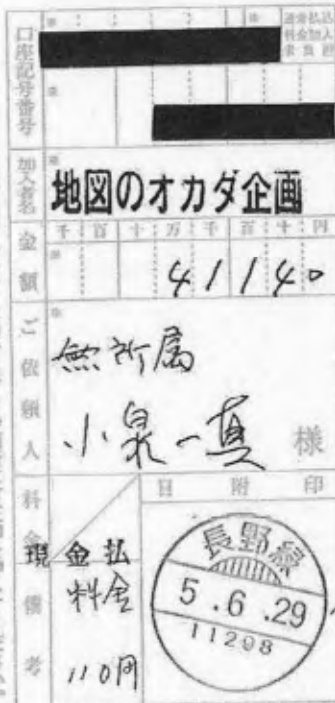 口座記号番号
通常払込
料金加入
者負担
加入者名
地図のオカダ企画
金額
千百十万千百十円
41140
ご依頼人
無所属
小泉一真 様
料金
備考
現金払
料金
110円
日附印
長野緑
5.6.29
11208